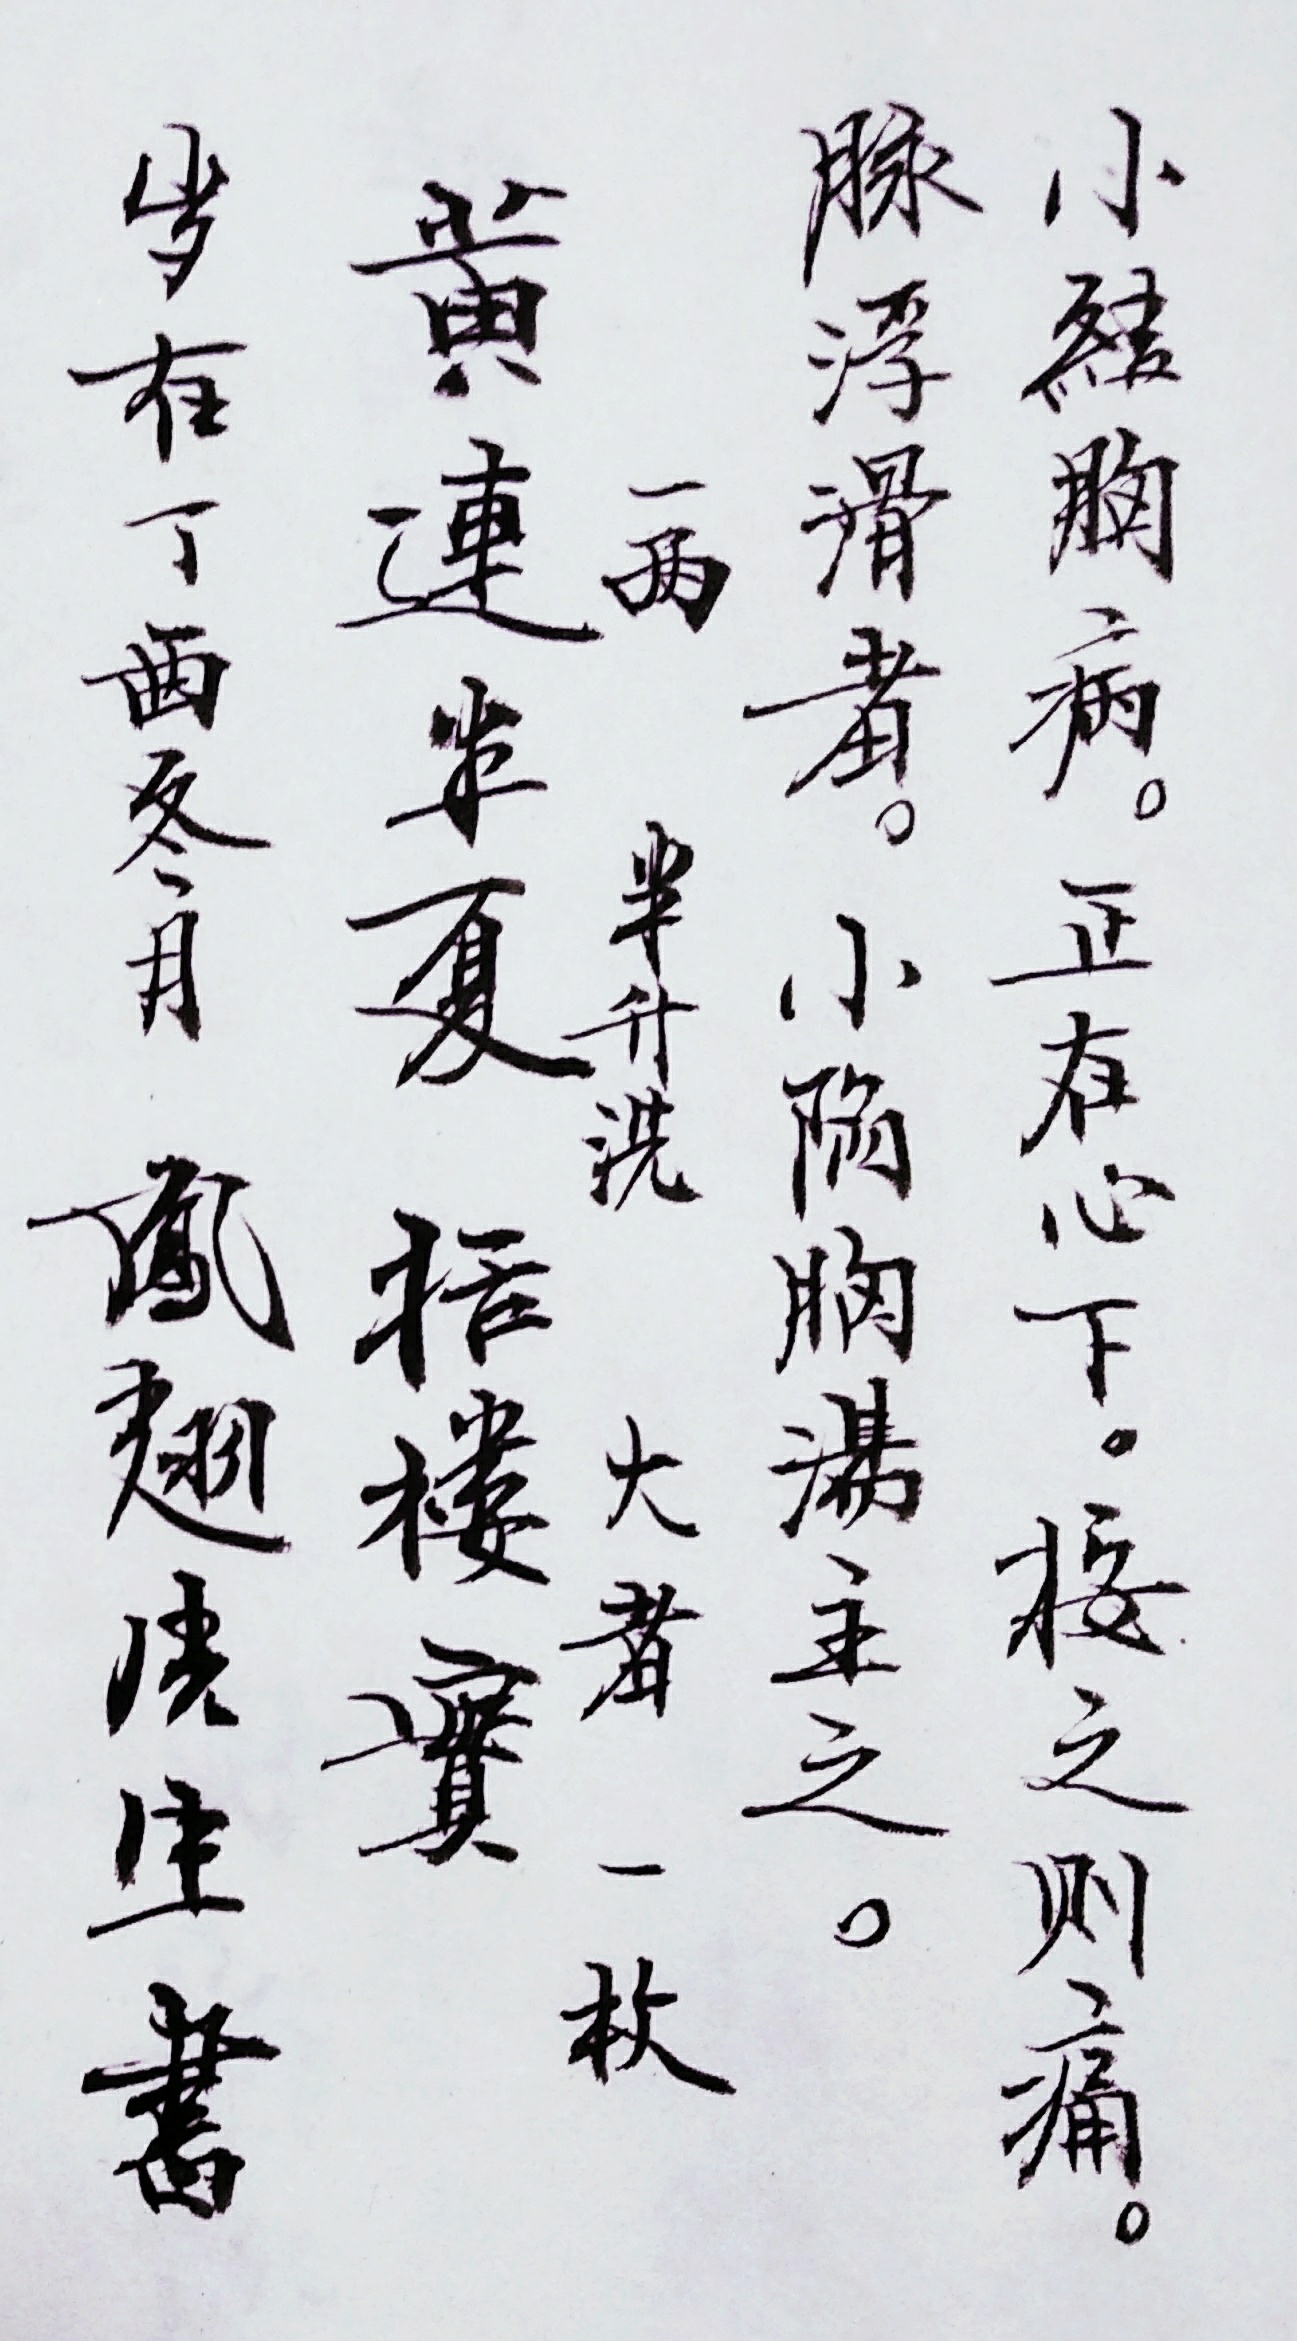 小結胸病。正在心下。按之则痛。
脉浮滑者。小陷胸湯主之。
一两 半升洗 大者一枚
黄連半夏 栝樓實
岁在丁酉冬月 鳳翅 生書